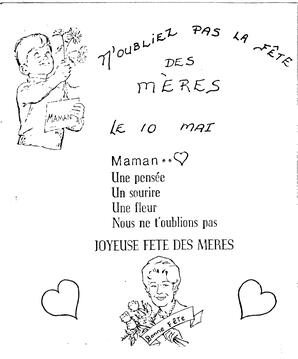 N'OUBLIEZ PAS LA FÊTE
DES
MÈRES
MAMAN
LE 10 MAI
Maman..♡
Une pensée
Un sourire
Une fleur
Nous ne t'oublions pas
JOYEUSE FETE DES MERES
Bonne FÊTE